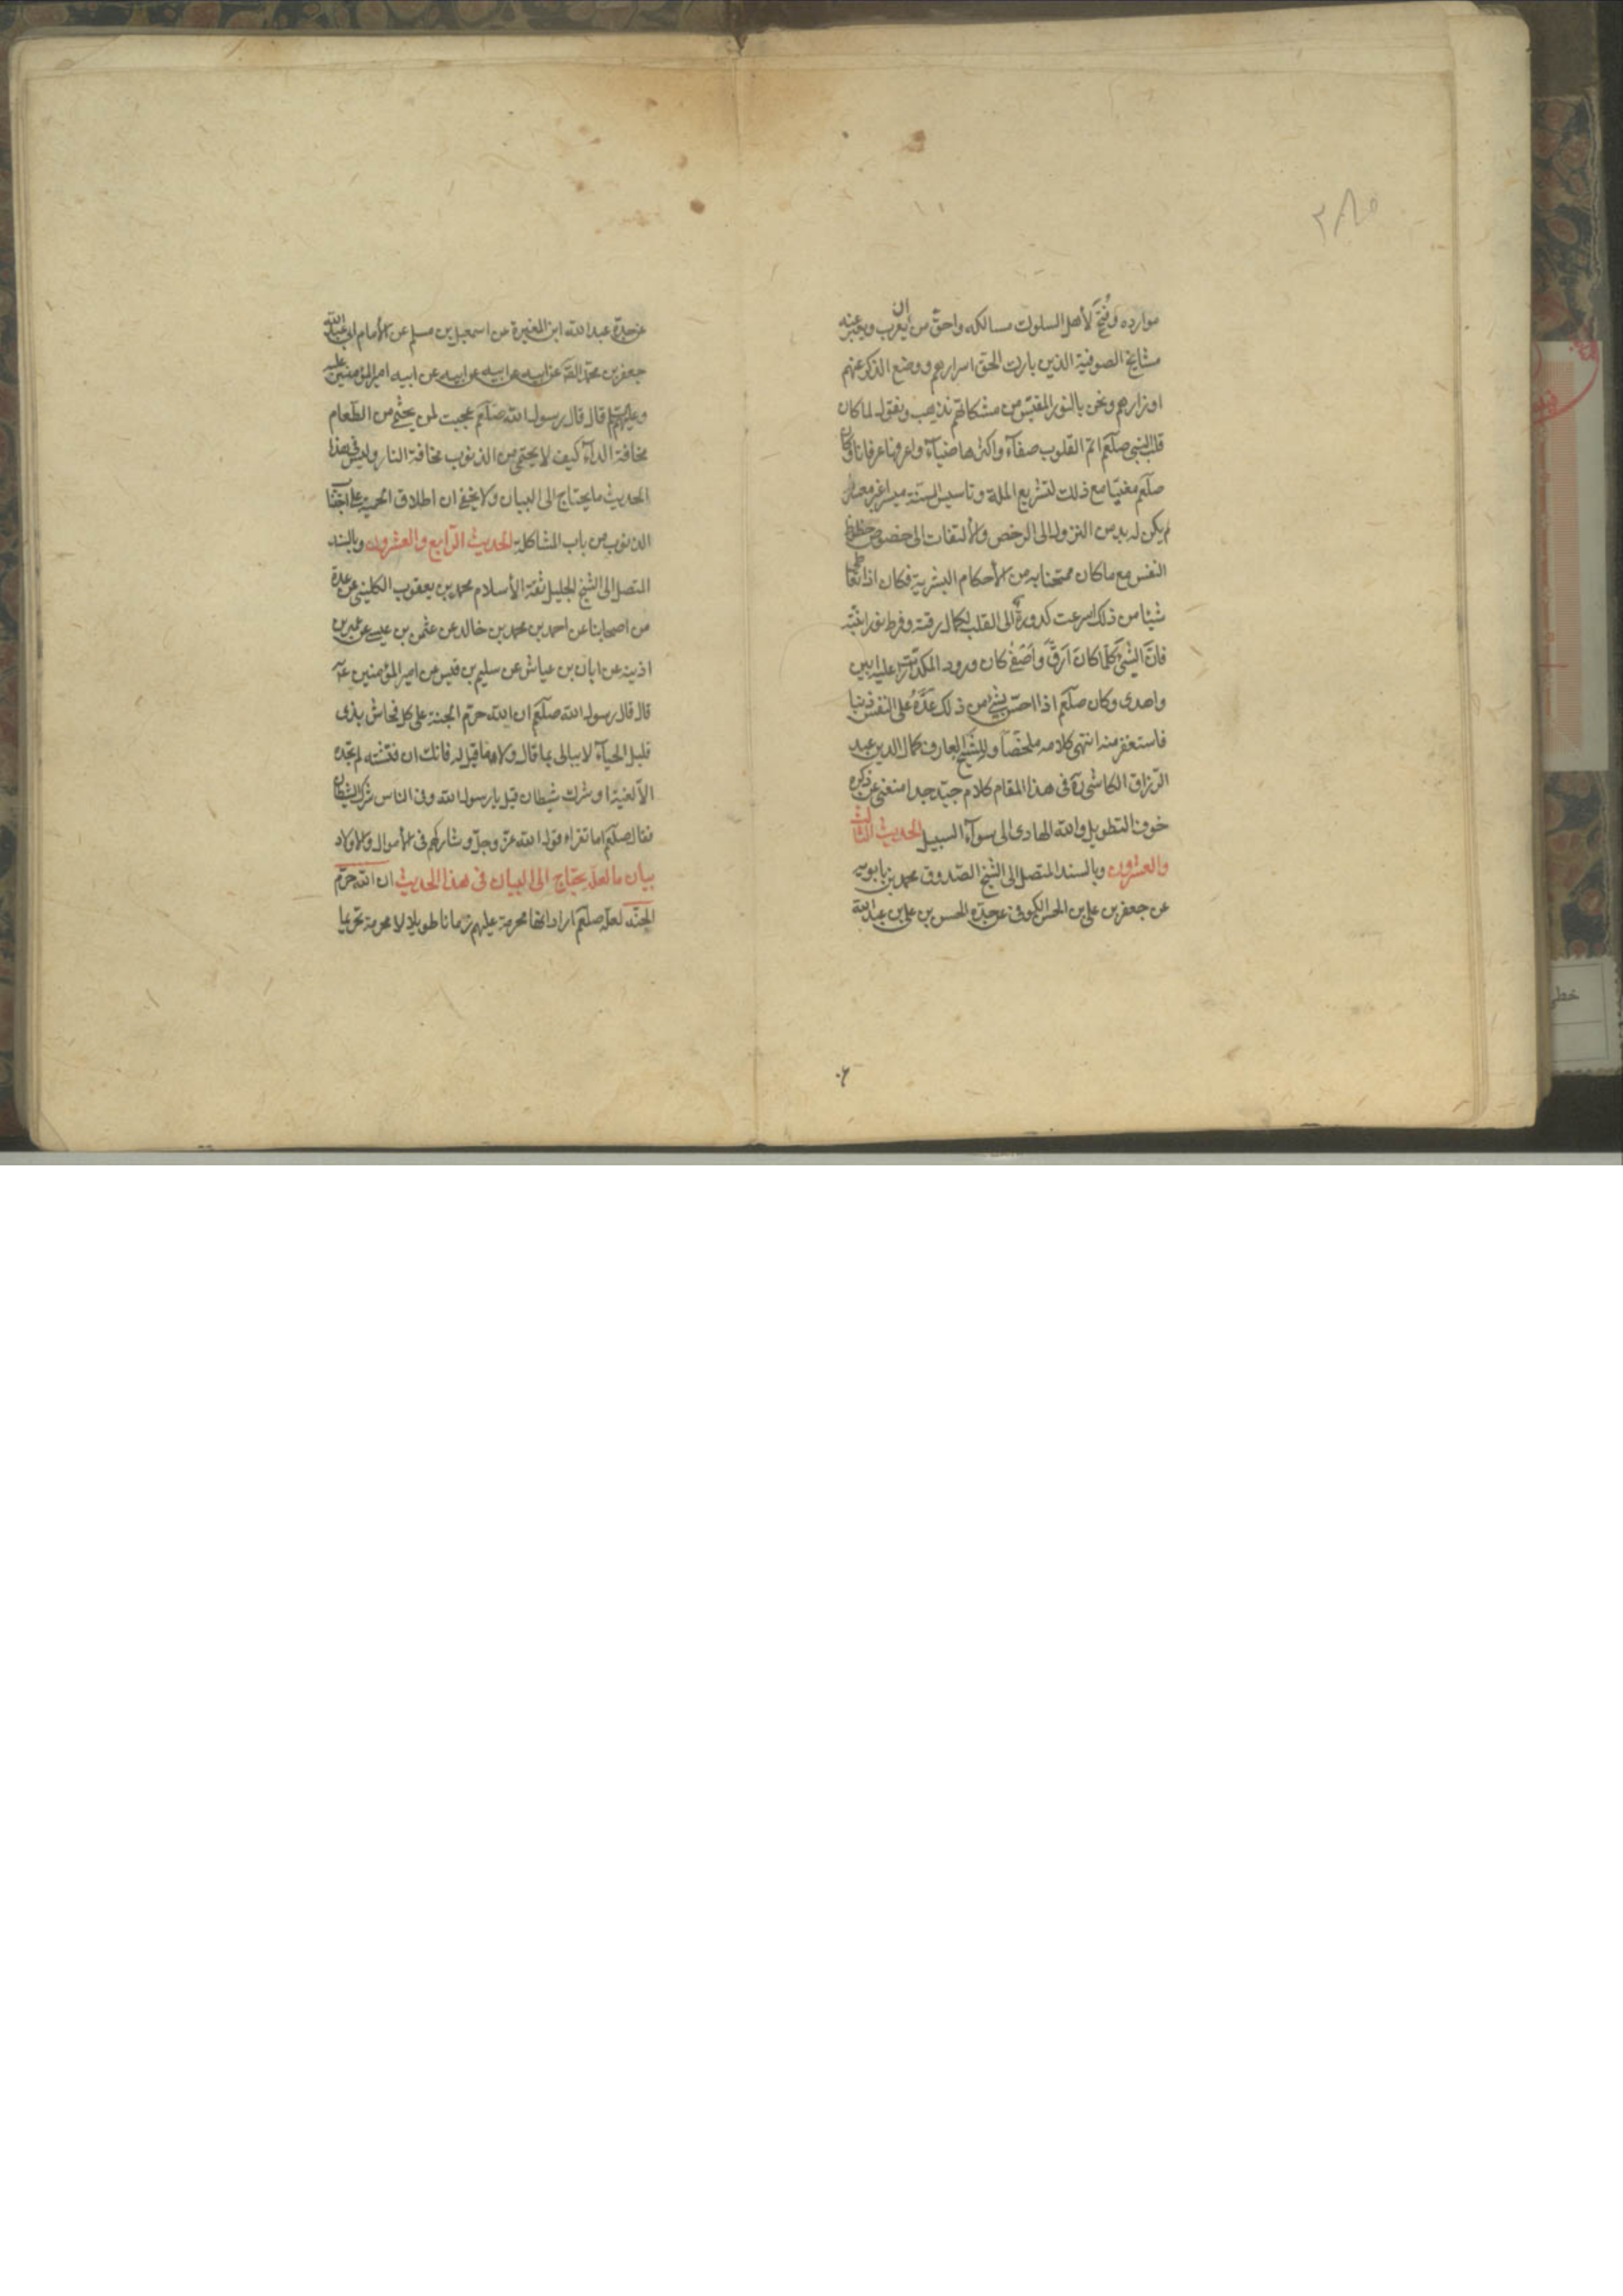 موارده وفُتحَ لأهل السلوك مسالكه واحق من ان يعرب ويعبر عنه
مشايخ الصوفية الذين بارك الحق اسرارهم ووضع الذكر عنهم
اوزارهم ونحن بالنور المقتبس من مشكاتهم نذهب ونقول لما كان
قلب النبي صلعم اتم القلوب صفآء واكثرها ضيآء واعرفها عرفانا وكان
صلعم معنيا مع ذلك لتشريع الملة وتاسيس السنة ميسرا غير معسر
لم يكن له بد من النزول الى الرخص والألتفات الى حضوض حظوظ
النفس مع ما كان ممتحنا به من الأحكام البشرية فكان اذا تعاطى
شيئا من ذلك اسرعت كدورة الى القلب لكمال رقته وفرط نورانيته
فانّ الشئ كلما كان ارقّ واصفى كان ورود المكدرات عليه ابين
واهدى وكان صلعم اذا احسّ بشئ من ذلك عدّهُ على النفس ذنبا
فاستغفر منه انتهى كلامه ملخصا وللشيخ العارف كمال الدين عبد
الرزاق الكاشي ره في هذا المقام كلام جيّد جدا منعني عن ذكره
خوف التطويل والله الهادي الى سوآء السبيل الحديث الثالث
والعشرون وبالسند المتصل الى الشيخ الصدوق محمد بن بابويه
عن جعفر بن علي بن الحسن الكوفي عن جده الحسن بن علي بن عبد الله
۶۰
عن جدة عبد الله ابن المغيرة عن اسمعيل بن مسلم عن الأمام ابي عبد الله
جعفر بن محمد الصّ عن ابيه عن ابيه عن ابيه عن ابيه امير المؤمنين عليه
وعليهم قال قال رسول الله صلعم عجبت لمن يحتمى من الطعام
مخافة الدآء كيف لا يحتمى من الذنوب مخافة النار وليس في هذا
الحديث ما يحتاج الى البيان ولا يخفى ان اطلاق الحمية على اجتناب
الذنوب من باب المشاكلة الحديث الرابع والعشرون وبالسند
المتصل الى الشيخ الجليل ثقة الأسلام محمد بن يعقوب الكليني عن عدة
من اصحابنا عن احمد بن محمد بن خالد عن عثمن بن عيسى عن عمر بن
اذينه عن ابان بن عياش عن سليم بن قيس عن امير المؤمنين ع
قال قال رسول الله صلعم ان الله حرّم الجنة على كل فحاش بذى
قليل الحيآء لا يبالى بما قال ولا ما قيل له فانك ان فتشته لم تجده
الا لغية او شرك شيطان قيل يا رسول الله وفى الناس شرك الشيطان
فقال صلعم اما تقراء قول الله عزّ وجلّ وشاركهم فى الأموال والأولاد
بيان ما لعله يحتاج الى البيان فى هذا الحديث ان الله حرّم
الجنه لعله صلعم اراد انها محرمة عليهم زمانا طويلا لا محرمة تحريما
خطي